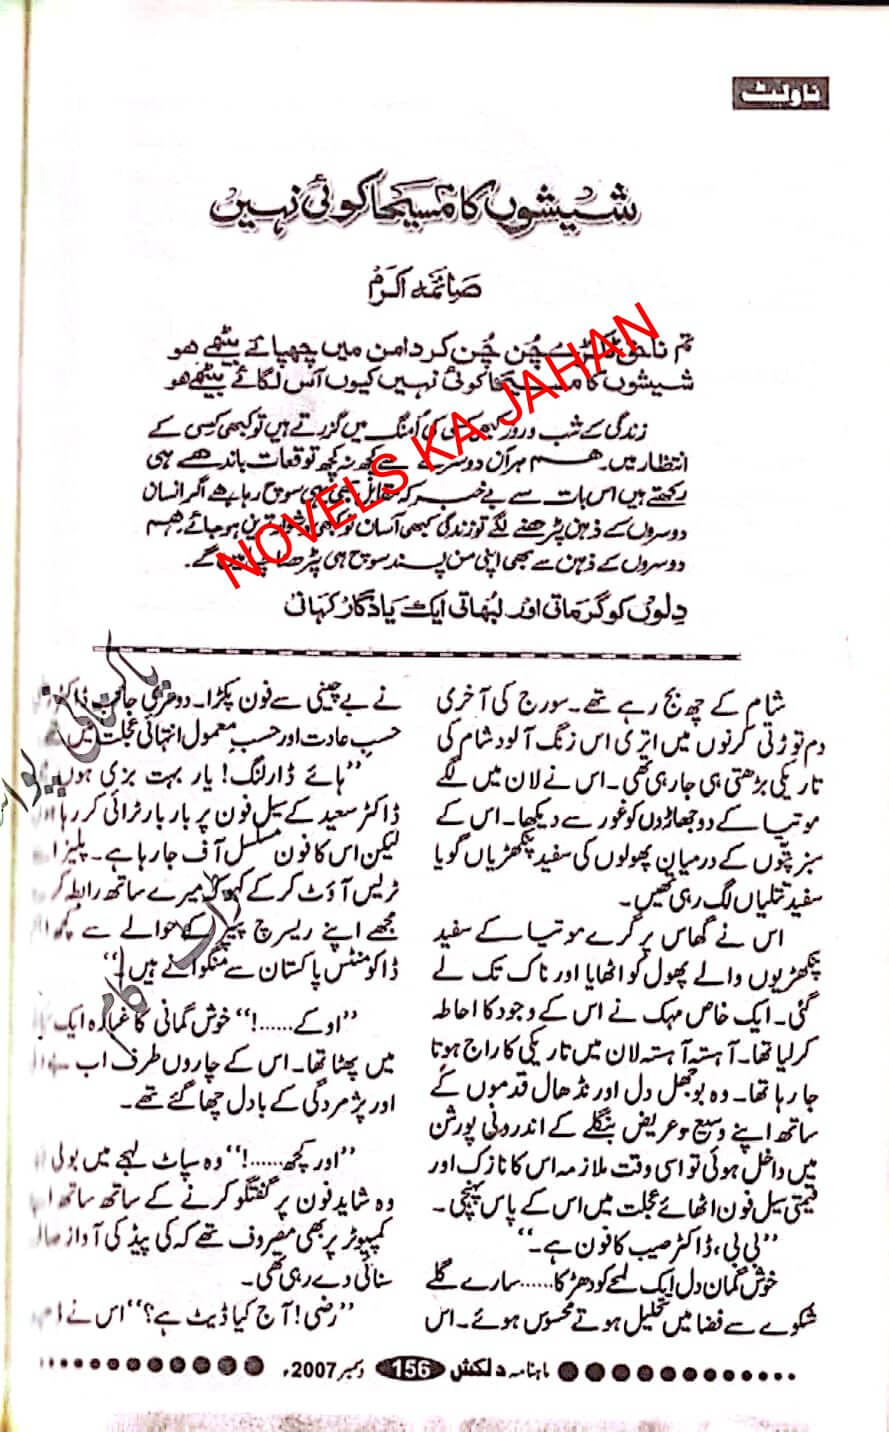 ناولٹ
شیشوں کا مسیحا کوئی نہیں
صائمہ اکرم
تم ناحق ٹکڑے چُن چُن کر دامن میں چھپائے بیٹھے ہو
شیشوں کا مسیحا کوئی نہیں کیوں آس لگائے بیٹھے ہو
زندگی کے شب و روز کبھی کسی کی اُمنگ میں گزرتے ہیں تو کبھی کسی کے
انتظار میں۔ ہم ہر آن دوسرے سے کچھ نہ کچھ توقعات باندھے ہی
رکھتے ہیں اس بات سے بے خبر کہ مقابل بھی یہی سوچ رہا ہے اگر انسان
دوسروں کے ذہن پڑھنے لگے تو زندگی کبھی آسان تو کبھی دشوار ترین ہو جائے۔ ہم
دوسروں کے ذہن سے بھی اپنی من پسند سوچ ہی پڑھنا چاہیں گے۔
دلوں کو گرماتی اور لبھاتی ایک یادگار کہانی
شام کے چھ بج رہے تھے۔ سورج کی آخری
دم توڑتی کرنوں میں اتری اس زنگ آلود شام کی
تاریکی بڑھتی ہی جا رہی تھی۔ اس نے لان میں لگے
موتیا کے دو جھاڑوں کو غور سے دیکھا۔ اس کے
سبز پتوں کے درمیان پھولوں کی سفید پنکھڑیاں گویا
سفید تتلیاں لگ رہی تھیں۔
اس نے گھاس پر گرے موتیا کے سفید
پنکھڑیوں والے پھول کو اٹھایا اور ناک تک لے
گئی۔ ایک خاص مہک نے اس کے وجود کا احاطہ
کر لیا تھا۔ آہستہ آہستہ لان میں تاریکی کا راج ہوتا
جا رہا تھا۔ وہ بوجھل دل اور نڈھال قدموں کے
ساتھ اپنے وسیع و عریض بنگلے کے اندرونی پورشن
میں داخل ہوئی تو اسی وقت ملازمہ اس کا نازک اور
قیمتی سیل فون اٹھائے عجلت میں اس کے پاس پہنچی۔
”بی بی، ڈاکٹر صیب کا فون ہے۔“
خوش گمان دل ایک لمحے کو دھڑکا...... سارے گلے
شکوے سے فضا میں تحلیل ہوتے محسوس ہوئے۔ اس
نے بے چینی سے فون پکڑا۔ دوسری جانب ڈاکٹر
حسبِ عادت اور حسبِ معمول انتہائی عجلت میں
”ہائے ڈارلنگ! یار بہت بزی ہوں
ڈاکٹر سعید کے سیل فون پر بار بار ٹرائی کر رہا ہوں
لیکن اس کا فون مسلسل آف جا رہا ہے۔ پلیز
ٹریس آؤٹ کر کے کہو کہ میرے ساتھ رابطہ کر
مجھے اپنے ریسرچ پیپر کے حوالے سے کچھ
ڈاکومنٹس پاکستان سے منگوانے ہیں!“
”اوکے......!“ خوش گمانی کا غبارہ ایک
میں پھٹا تھا۔ اس کے چاروں طرف اب
اور پژمردگی کے بادل چھا گئے تھے۔
”اور کچھ......!“ وہ سپاٹ لہجے میں بولی
وہ شاید فون پر گفتگو کرنے کے ساتھ ساتھ
کمپیوٹر پر بھی مصروف تھے کہ کی پیڈ کی آواز صاف
سنائی دے رہی تھی۔
”رضی! آج کیا ڈیٹ ہے؟“ اس نے
ماہنامہ دلکش 156 دسمبر 2007ء
NOVELS KA JAHAN